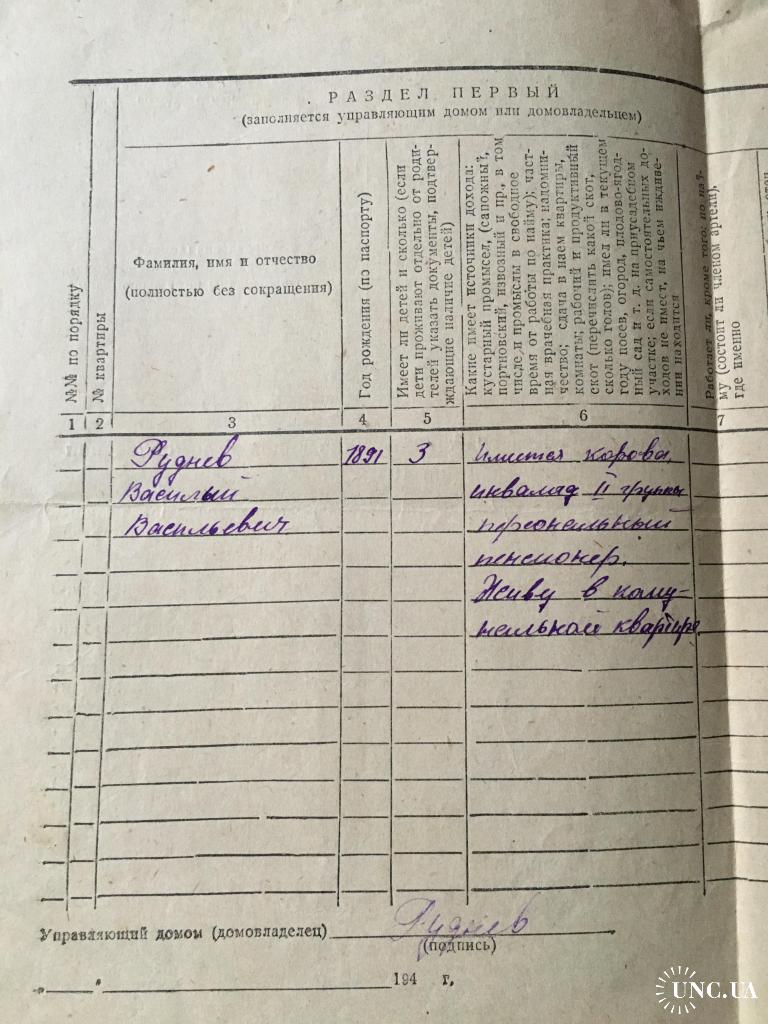 РАЗДЕЛ ПЕРВЫЙ
(заполняется управляющим домом или домовладельцем)
№№ по порядку
№ квартиры
Фамилия, имя и отчество
(полностью без сокращения)
Год рождения (по паспорту)
Имеет ли детей и сколько (если
дети проживают отдельно от роди-
телей указать документы, подтвер-
ждающие наличие детей)
Какие имеет источники дохода:
кустарный промысел, (сапожный,
портновский, извозный и пр., в том
числе и промыслы в свободное
время от работы по найму); част-
ная врачебная практика; надомни-
чество; сдача в наем квартиры,
комнаты; рабочий и продуктивный
скот (перечислить какой скот,
сколько голов); имел ли в текущем
году посев, огород, плодово-ягод-
ный сад и т. д. на приусадебном
участке; если самостоятельных до-
ходов не имеет, на чьем иждиве-
нии находится
Работает ли, кроме того: по най-
му (состоит ли членом артели),
где именно
1 2 3 4 5 6 7
Руднев 1891 3 Имиется корова,
Василый инвалид II группы
Васильевич персональный
пенсионер.
Живу в кому-
нальной квартире
Управляющий домом (домовладелец) Руднев
(подпись)
„ " 194 г.
UNC.UA